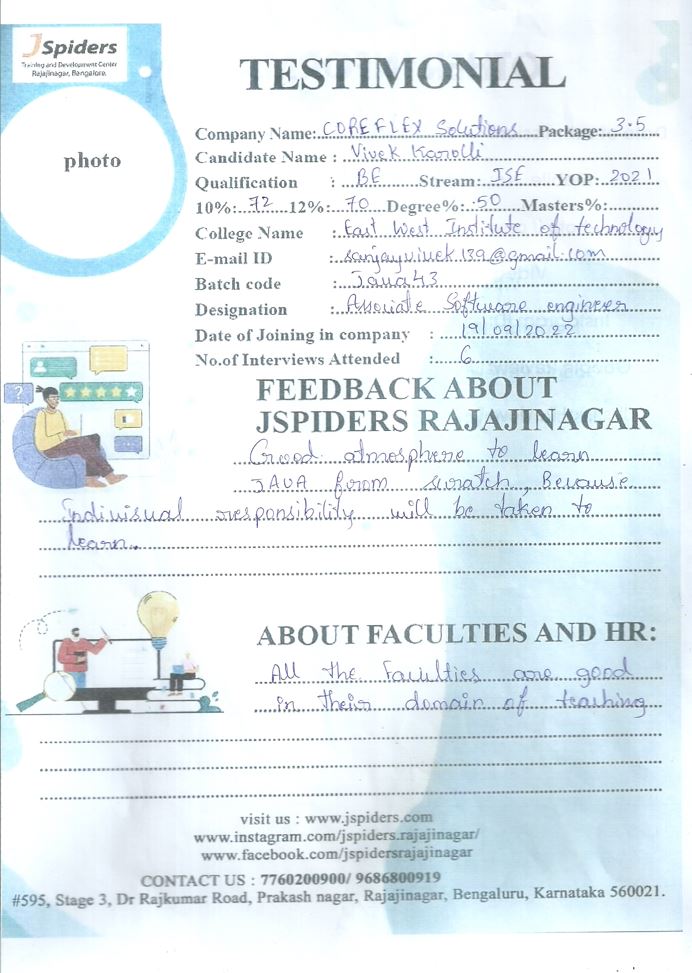 JSpiders
Training and Development Center
Rajajinagar, Bangalore.
TESTIMONIAL
photo
Company Name: COREFLEX Solutions Package: 3.5
Candidate Name : Vivek Karolli
Qualification : BE Stream: ISE YOP: 2021
10%: 72 12%: 70 Degree%: 50 Masters%:
College Name : East West Institute of technology
E-mail ID : sanjayvivek.139@gmail.com
Batch code : Java43
Designation : Associate Software engineer
Date of Joining in company : 19/09/2022
No.of Interviews Attended : 6
FEEDBACK ABOUT
JSPIDERS RAJAJINAGAR
Good atmosphere to learn
JAVA from scratch, Because
Indivisual responsibility will be taken to
learn.
ABOUT FACULTIES AND HR:
All the Faculties are good
in their domain of teaching
visit us : www.jspiders.com
www.instagram.com/jspiders.rajajinagar/
www.facebook.com/jspidersrajajinagar
CONTACT US : 7760200900/ 9686800919
#595, Stage 3, Dr Rajkumar Road, Prakash nagar, Rajajinagar, Bengaluru, Karnataka 560021.